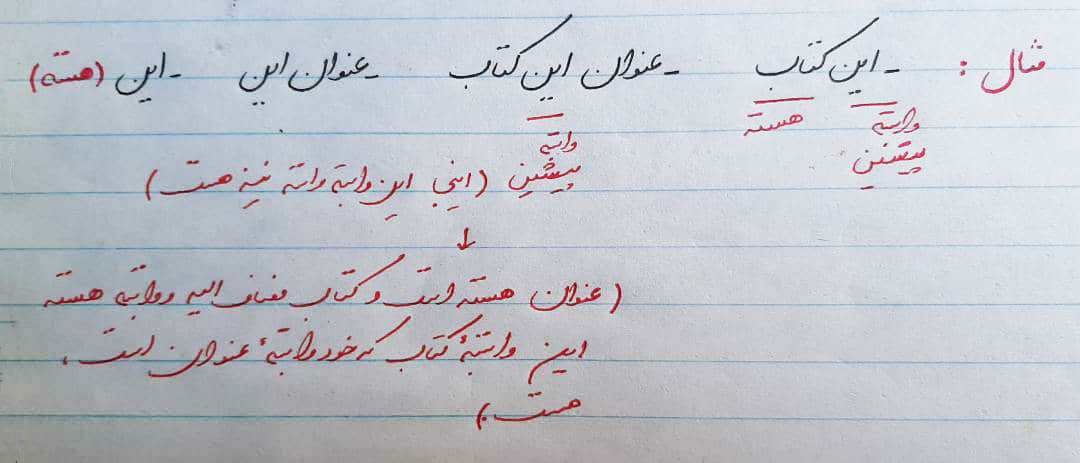 مثال : - این کتاب - عنوان این کتاب - عنوان این - این (هسته)
وابسته هسته وابسته
پیشین پیشین (اینجا این وابستهٔ وابسته نیز هست)
↓
(عنوان هسته است و کتاب مضاف الیه و وابسته هسته
این وابستهٔ کتاب که خود وابستهٔ عنوان است،
هست.)